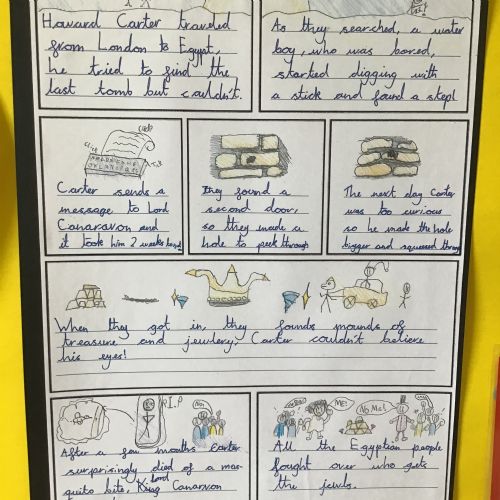 Howard Carter traveled
from London to Egypt,
he tried to find the
last tomb but couldn't.
As they searched, a water
boy, who was bored,
started digging with
a stick and found a step!
click
click
Carter sends a
message to Lord
Canaravon and
it took him 2 weeks
they found a
second door,
so they made a
hole to peek through
The next day Carter
was too curious
so he made the hole
bigger and squeezed through
When they got in, they founds mounds of
treasure and jewlery. Carter couldn't believe
his eyes!
R.I.P
After a few months Carter
surprisingly died of a mos-
quito bite, King Lord Canarvon
ME!
No Me!
All the Egyptian people
fought over who gets
the jewls.